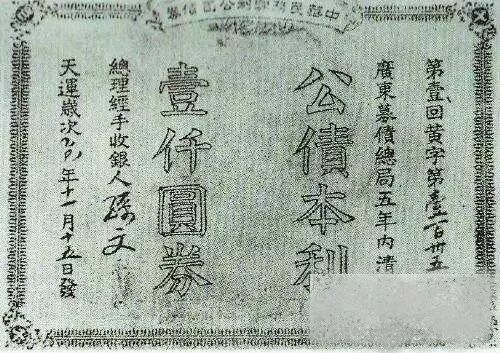 中華民務興利公司債券
第壹回黃字第壹百卅五
廣東募債總局五年內清
公債本利
壹仟圓券
總理經手收銀人孫文
天運歲次乙巳年十一月十五日發